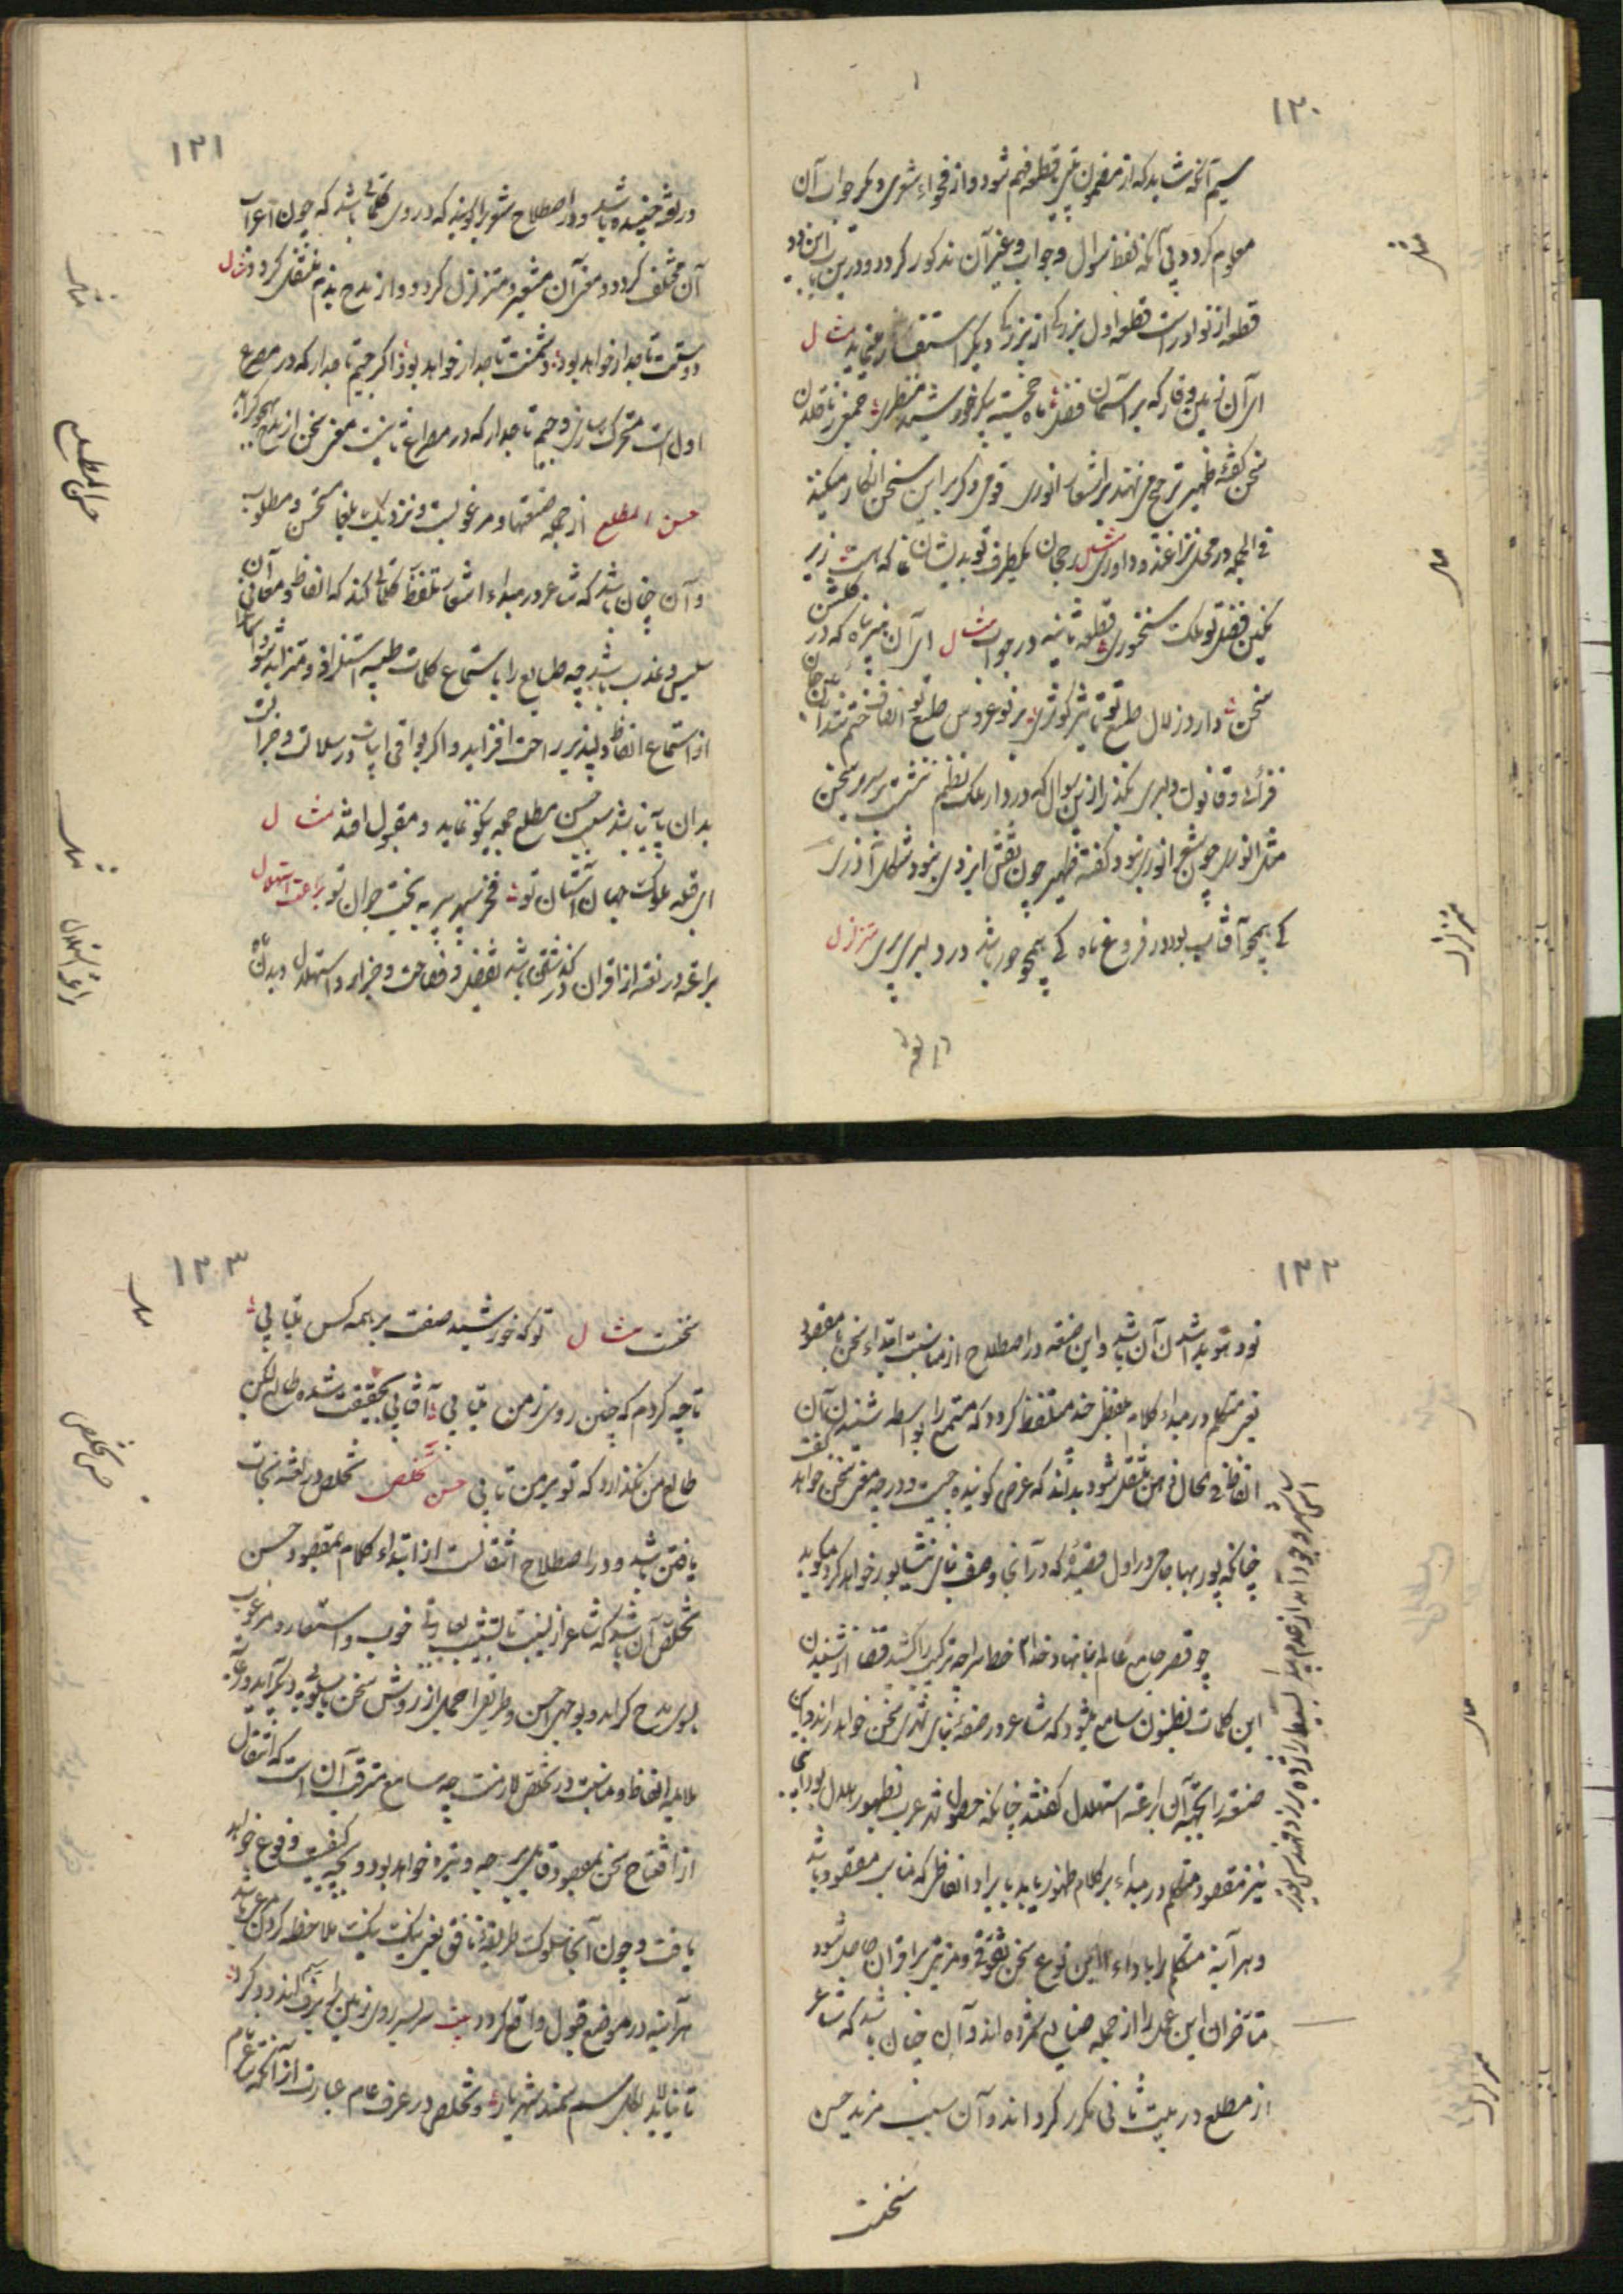 ۱۳۰
سیم آنکه شاید که از مضمون بیتی یا قطعه فهم شود و از فحواء شعری دیگر جواب آن
معلوم گردد بی آنکه لفظ سوال و جواب و غیر آن مذکور گردد و درین باب این دو
قطعه از نوادر است قطعه اول بزرگی از بزرگی دیگر استفسار مینماید مثال
ای آن زمین وقار که بر آسمان فضل ماه خجسته پیکر خورشید منظری جمعی ز ناقدان
سخن گفتهٔ ظهیر ترجیح می نهند بر اشعار انوری قومی دگر برین سخن انکار میکنند
فی الجمله در محل نزاعند و داوری رجحان یکطرف تو بدیشان نما که هست زیر
نگین فضل تو ملک سخنوری قطعه ثانیه در جواب مثال ای آن ... که در
سخن دارد زلال طبع تو تاثیر کوثری بر نوعروس طبع تو انصاف ختم شد آن
... و قانون دلبری بگذر ازین سوال که در دار ملک نظم ننشست بر سریر سخن
مثل انوری چون شعر انوری نبود گفتهٔ ظهیر چون نقش ایزدی نبود شکل آذری
کی همچو آفتاب بود در فروغ ماه کی همچو حور باشد در دلبری پری متزلزل
مثال
مثال
متزلزل
۱۳۱
در لغة جنبیده باشد و در اصطلاح شعریرا گویند که در وی کلماتی باشد که چون اعراب
آن مختلف گردد معنی آن متغیر و متزلزل گردد و از مدح بذم منتقل گردد مثال
دوستت تاجدار خواهد بود دشمنت تاجدار خواهد بود اگر جیم تاجدار که در مصرع
اول است متحرک سازی و جیم تاجدار که در مصراع ثانیست معنی سخن از مدح بهجو گراید
حسن المطلع از جمله صنعتهاء مرغوبست و نزدیک بلغا مستحسن و مطلوب
و آن چنان باشد که شاعر در مبداء اشعار تلفظ بکلماتی کند که الفاظ و معانی آن
سلیس و عذب باشد چه طبایع را باستماع کلمات طیبه استلذاذی و متزاید شود
از استماع الفاظ دلپذیر راحت افزاید و اگر بواقی ابیات در سلاست و جزالت
بدان پایه نباشد بسبب حسن مطلع جمله نیکو نماید و مقبول افتد مثال
ای قبله ملوک جهان آستان تو فخر سپهر پیر به بخت جوان تو براعة استهلال
براعة در لغة از اقران در گذشتن باشد بفضل و فصاحت و جز آن و استهلال دیدن ماه
مثال
حسن المطلع
مثال
براعة استهلال
۱۳۲
نو و هویدا شدن آن باشد و این صنعة در اصطلاح از مناسبت ابتداء سخن با مقصود
یعنی متکلم در مبداء کلام بلفظی چند متلفظ گردد که مستمع را بواسطه شنیدن آن
الفاظ فی الحال ذهن منتقل شود بدانکه غرض گوینده چیست و در چه معنی سخن خواهد گفت
چنانکه پور بها جامی در اول قصیدهٔ که در آنجا وصف بنای نیشابور خواهد کرد میگوید
چو قصر جامع عالم بنا نهاد خدا خط مساحة ترکیب را کشید قضا از شنیدن
این کلمات بظنون سامع میشود که شاعر در صفة بنای شهری سخن خواهد راند و این
صنعة را بجهة آن براعة استهلال گفتند چنانکه حصول شهر عرب بظهور هلال بود اینجا
نیز مقصود متکلم در مبداء هر کلام ظهور یابد بایراد الفاظی که مناسب مقصود باشد
و هر آینه متکلم را باداء این نوع سخن تفوق و مزیتی بر اقران حاصل شود
متاخران این عمل را از جمله صنایع شمرده اند و آن چنان باشد که شاعر
از مطلع در بیت ثانی مکرر گرداند و آن سبب مزید حسن
سخنست
مثال
۱۳۳
سخنست مثال تو که خورشید صفت بر همه کس میتابی
تا چه کردم که چنین روی ز من میتابی آفتابی بحقیقت شده طالع لیکن
طالع من نگذارد که تو بر من تابی حسن تخلص تخلص در لغة نجات
یافتن باشد و در اصطلاح انتقالست از ابتداء کلام بمقصود حسن
تخلص آن باشد که شاعر از نسیب یا تشبیب بعبارتی خوب و استعاره مرغوب
بسوی مدح گراید و بوجهی احسن و طریقی اجمل از روش سخن باسلوبی دیگر آید و رعایت
ملایمه الفاظ و مناسبت در تخلص لازمست چه سامع مترقب آن است که انتقال
از افتتاح سخن بمقصود قایل بر چه وتیره خواهد بود و بچه کیفیت وقوع خواهد
یافت و چون آنجا سلوک طریقهٔ لایق یعنی نیک نیک ملاحظه کردن مرعی باشد
هر آینه در موضع قبول واقع گردد بیت
تا نیاید ... سم سمند شهریار و تخلص در عرف عام عبارت از آنکه شاعر نام
مثال
حسن تخلص